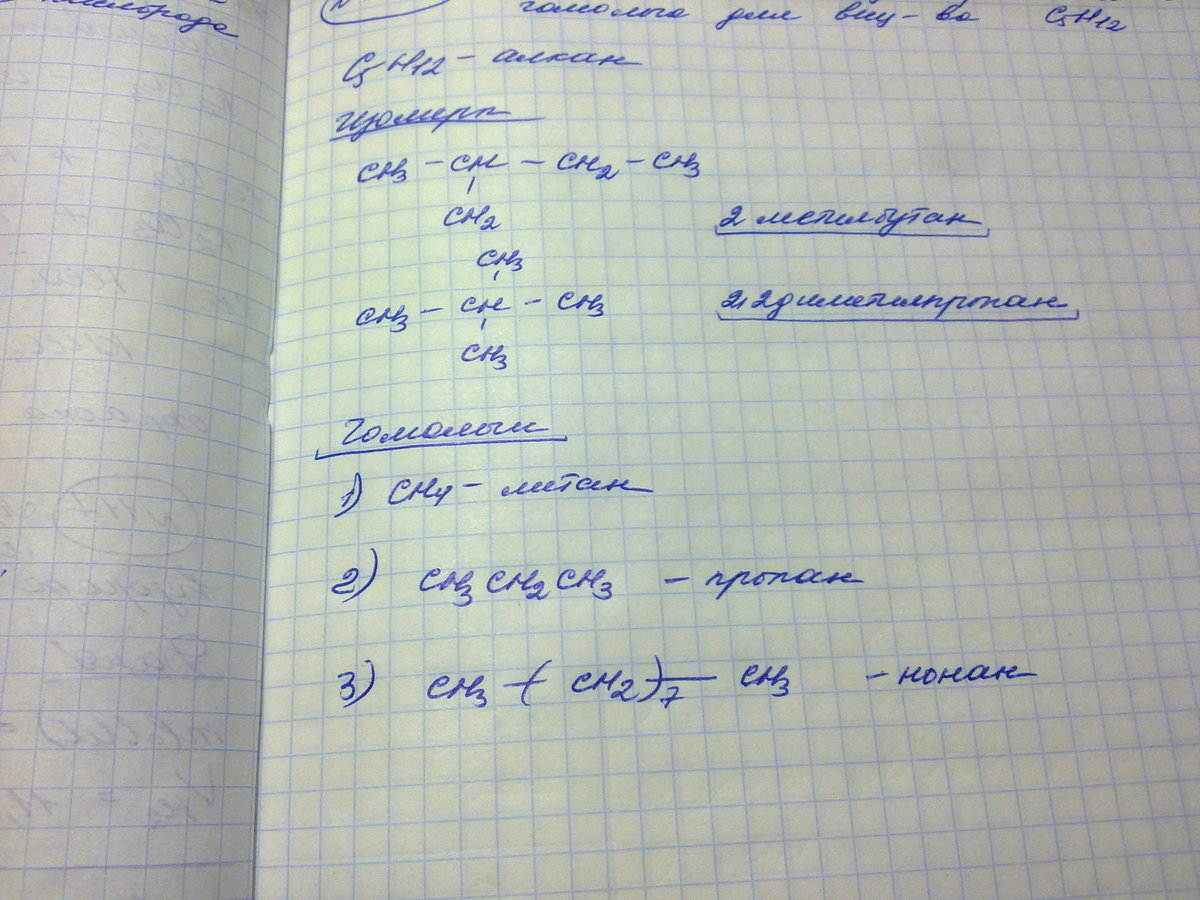 гомолога для вещ-ва C5H12
C5H12 - алкан
Изомеры
CH3 - CH - CH2 - CH3
CH2
2 метилбутан
CH3
CH3 - CH - CH3
2,2 диметилпропан
CH3
Гомологи
1) CH4 - метан
2) CH3 CH2 CH3 - пропан
3) CH3 - (CH2)7 - CH3 - нонан